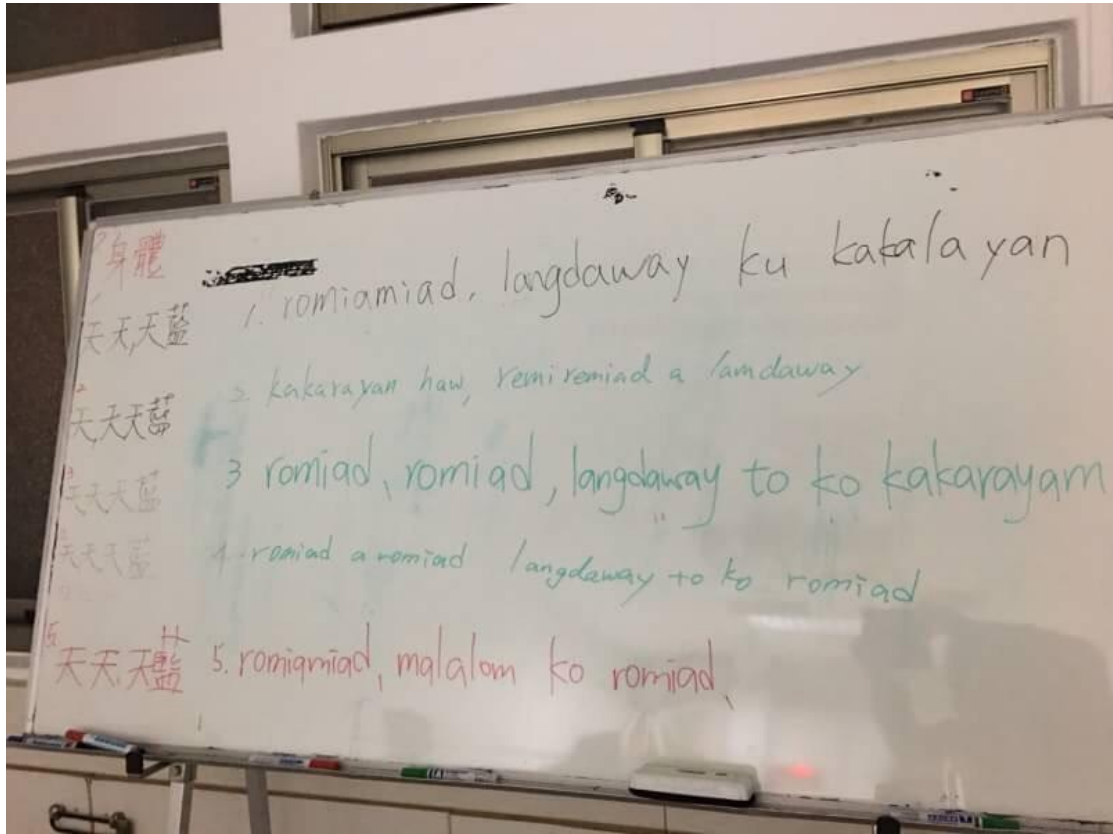 身體
天天,天藍 1. romiamiad, langdaway ku kakalayan
2 天,天天藍 2. kakarayan haw, remiremiad a lamdaway
3 天天天藍 3 romiad, romiad, langdaway to ko kakarayam
天天天藍 4. romiad a romiad langdaway to ko romiad
5. 天天,天藍 5. romiamiad, malalom ko romiad,